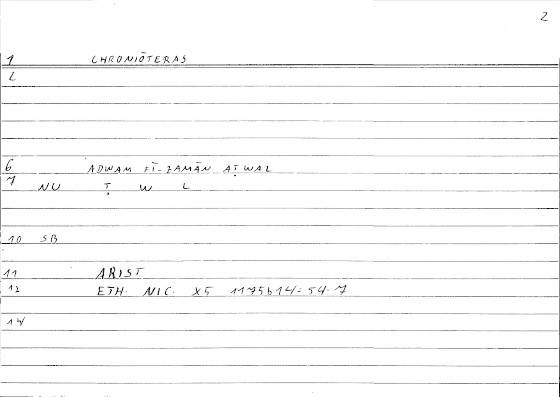 2
1 CHRONIŌTERAS
L
6 ADWAM FĪ-ZAMĀN AṬWAL
7 NU Ṭ W L
10 SB
11 ARIST
12 ETH. NIC. X5 1175b14 = 54.7
14